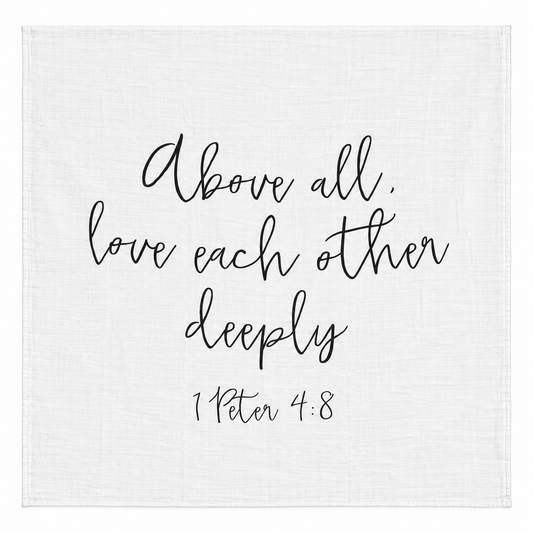 Above all,
love each other
deeply
1 Peter 4:8